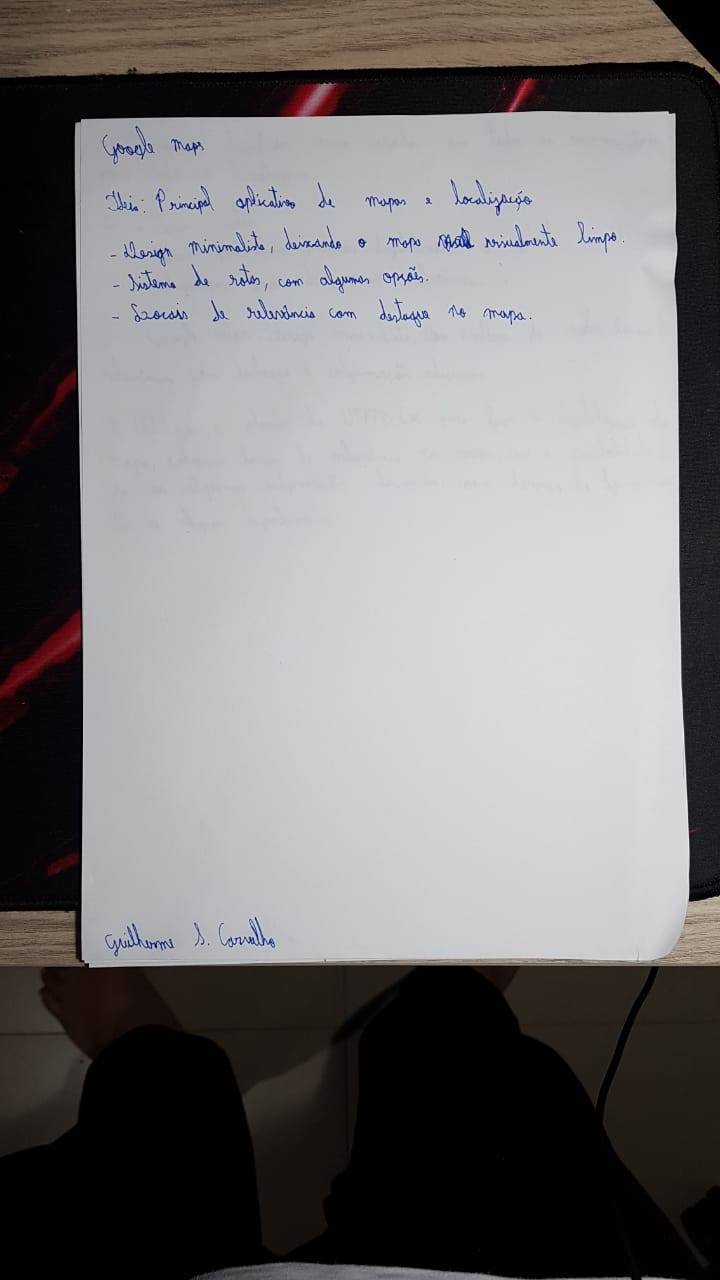 Google Maps
Ideia: Principal aplicativo de mapas e localização
- Design minimalista, deixando o mapa visualmente limpo.
- Sistema de rotas, com algumas opções.
- Locais de relevância com destaque no mapa.
Guilherme S. Carvalho